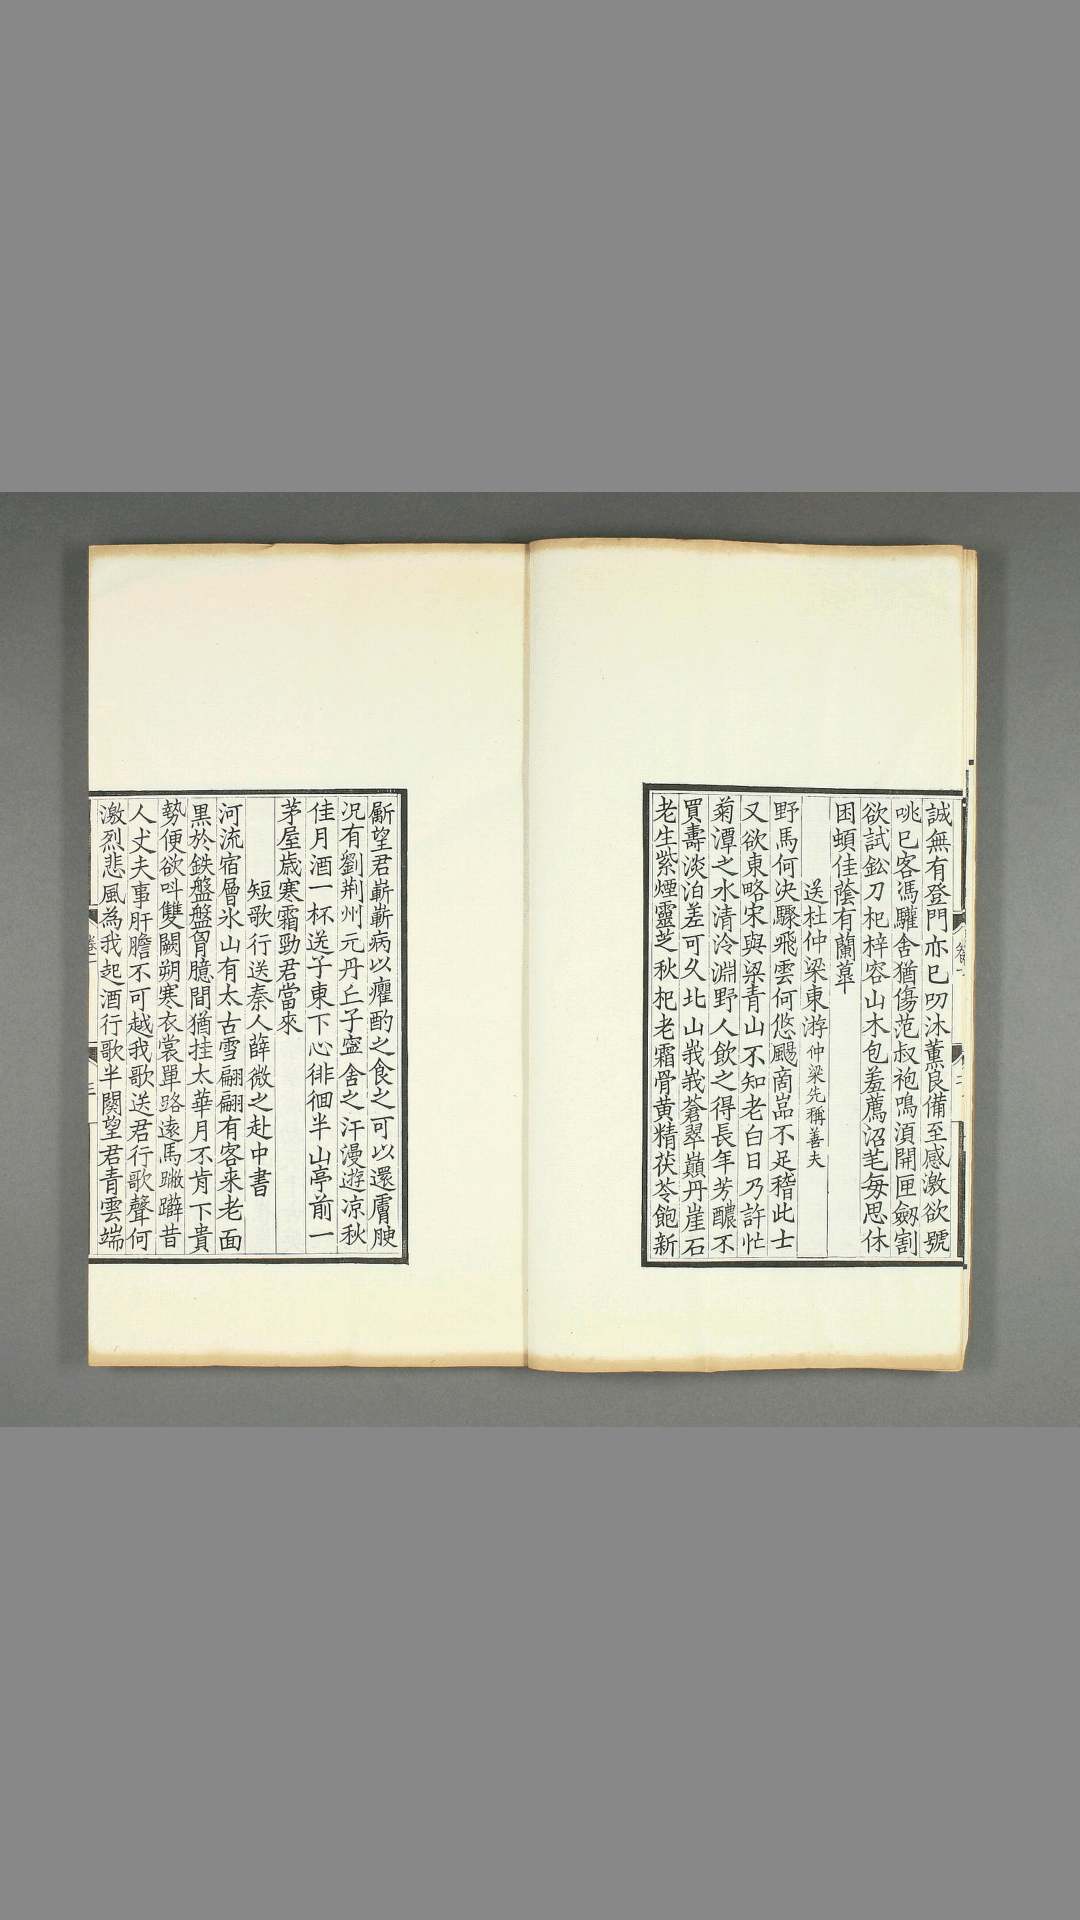 誠無有登門亦已叨沐薰良備至感激欲號
咷已客馮驩舍猶傷范叔袍鳴湏開匣劒割
欲試鈆刀杞梓容山木包羞薦沼毛每思休
困頓佳蔭有蘭皐
送杜仲梁東游仲梁先稱善夫
野馬何决驟飛雲何悠颺啇嵓不足稽此士
又欲東略宋與梁青山不知老白日乃許忙
菊潭之水清泠淵野人飲之得長年芳醲不
買壽淡泊差可久北山峩峩蒼翠巔丹崖石
老生紫煙靈芝秋杞老霜骨黄精茯苓飽新
斸望君嶄嶄病以癯酌之食之可以還膚腴
况有劉荆州元丹丘子寍舍之汗漫遊凉秋
佳月酒一杯送子東下心徘徊半山亭前一
茅屋歳寒霜勁君當來
短歌行送秦人薛微之赴中書
河流宿層氷山有太古雪翩翩有客来老面
黒於鉄盤盤胷臆間猶挂太華月不肯下貴
勢便欲呌雙闕朔寒衣裳單路逺馬蹩躃昔
人丈夫事肝膽不可越我歌送君行歌聲何
激烈悲風為我起酒行歌半闋望君青雲端
卷一
三